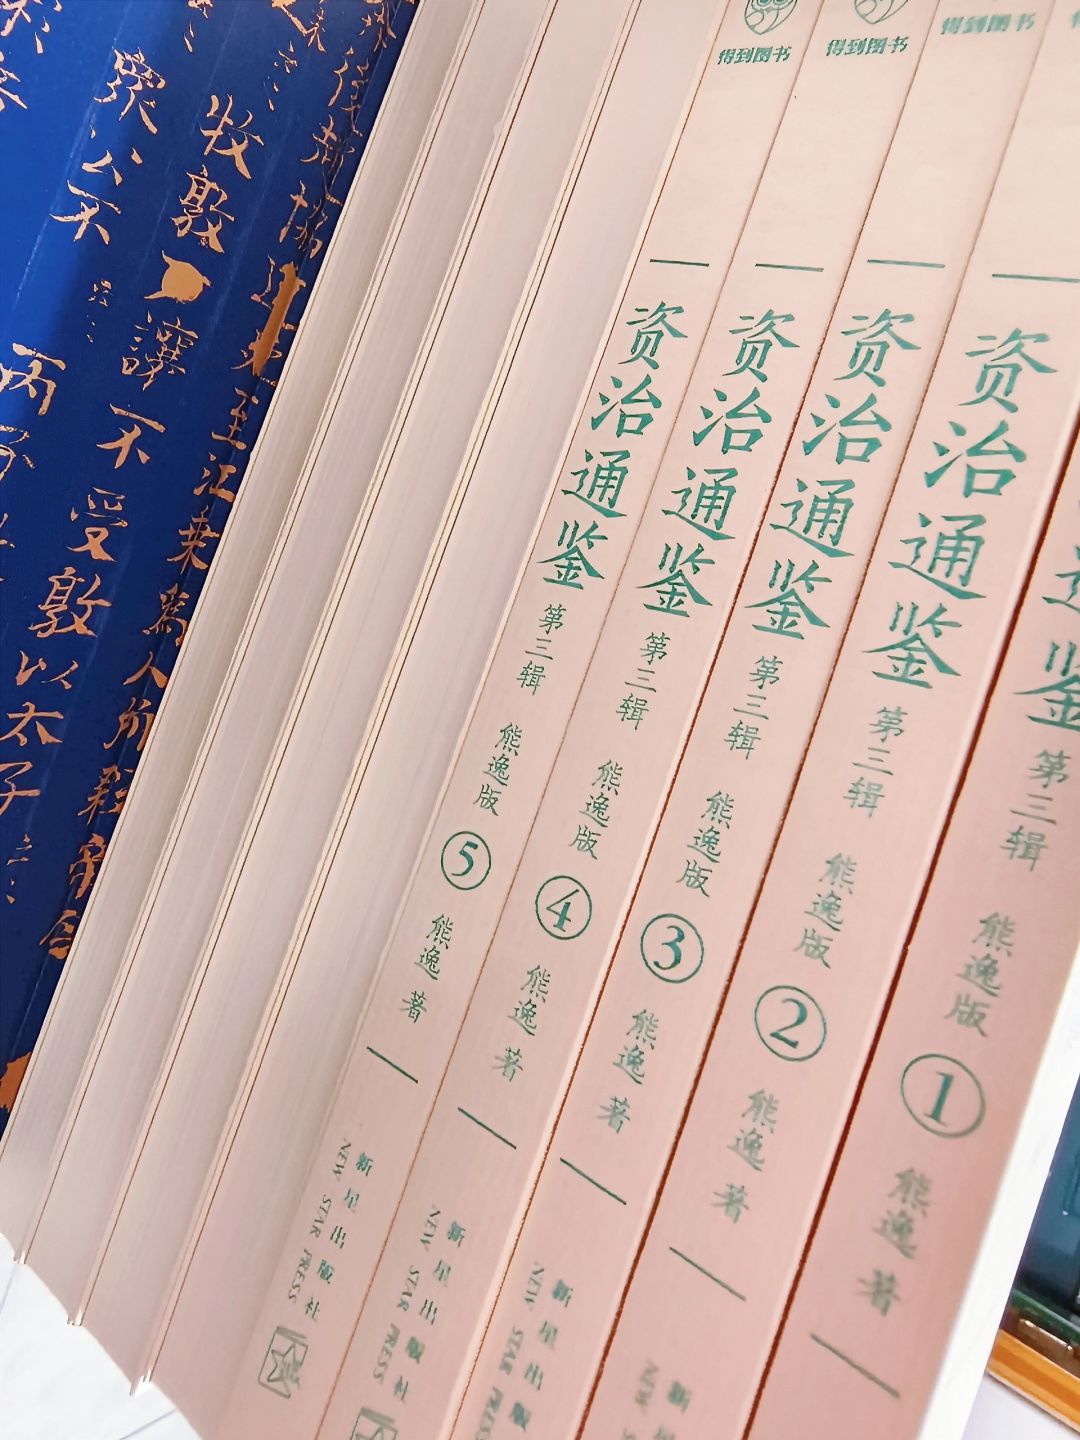 得到图书
得到图书
得到图书
资治通鉴 第三辑 熊逸版 ⑤ 熊逸 著
新星出版社
NEW STAR PRESS
资治通鉴 第三辑 熊逸版 ④ 熊逸 著
新星出版社
NEW STAR PRESS
资治通鉴 第三辑 熊逸版 ③ 熊逸 著
新星出版
NEW STAR PRESS
资治通鉴 第三辑 熊逸版 ② 熊逸 著
新
NEW
资治通鉴 第三辑 熊逸版 ① 熊逸 著
牧敦
讓不受敦以太子
至江乘為人所殺